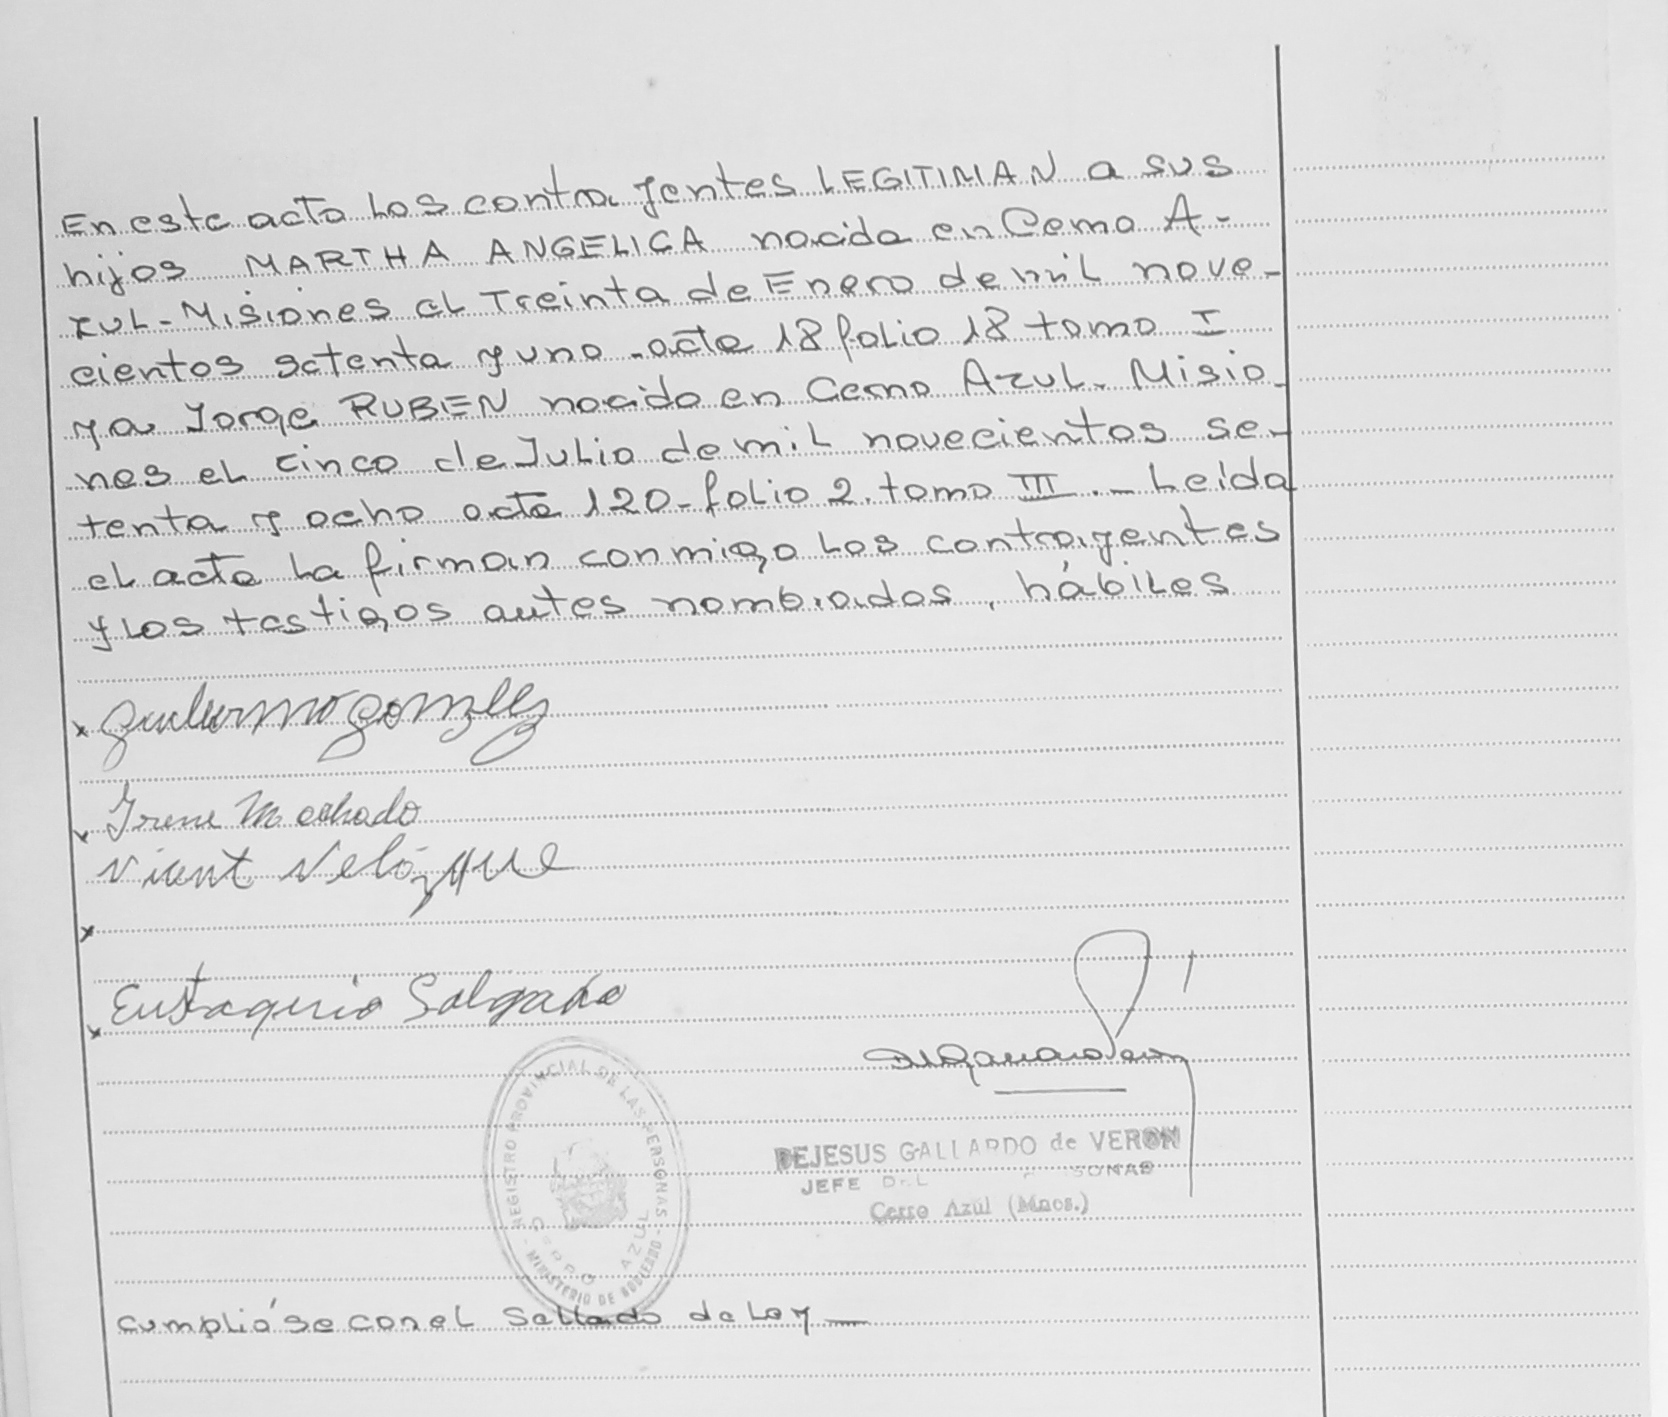 En este acto los contrayentes LEGITIMAN a sus
hijos MARTHA ANGELICA nacida en Cerro A-
zul-Misiones el Treinta de Enero de mil nove-
cientos setenta y uno - acta 18 folio 18 tomo I
y a Jorge RUBEN nacido en Cerro Azul - Misio-
nes el cinco de Julio de mil novecientos se-
tenta y ocho acta 120 - folio 2. tomo III . - Leida
el acta la firman conmigo los contrayentes
y los testigos antes nombrados, hábiles
x Guillermo Gonzalez
x Irene Machado
Vicent Velázque
x
x Eustaquio Salgado
REGISTRO PROVINCIAL DE LAS PERSONAS - MINISTERIO DE GOBIERNO -
CERRO AZUL
DEJESUS GALLARDO de VERON
JEFE DEL
Cerro Azul (Mnes.)
Cumplióse con el Sellado de Ley —